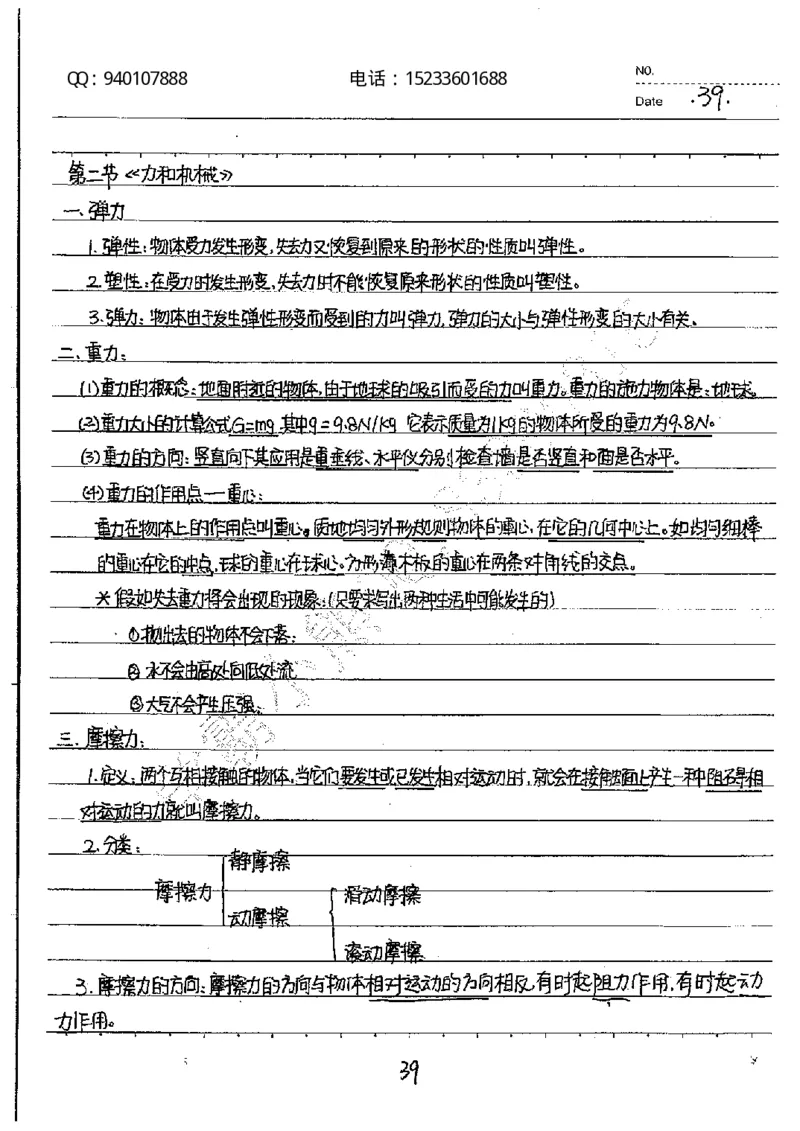 QQ：940107888 电话：15233601688 NO.
Date .39.
第二节《力和机械》
一、弹力
1. 弹性：物体受力发生形变，失去力又恢复到原来的形状的性质叫弹性。
2. 塑性：在受力时发生形变，失去力时不能恢复原来形状的性质叫塑性。
3. 弹力：物体由于发生弹性形变而受到的力叫弹力，弹力的大小与弹性形变的大小有关、
二、重力：
(1)重力的概念：地面附近的物体，由于地球的吸引而受的力叫重力。重力的施力物体是：地球。
(2)重力大小的计算公式G=mg 其中g=9.8N/kg 它表示质量为1kg的物体所受的重力为9.8N。
(3)重力的方向：竖直向下其应用是重垂线、水平仪分别检查墙是否竖直和面是否水平。
(4)重力的作用点——重心：
重力在物体上的作用点叫重心。质地均匀外形规则物体的重心，在它的几何中心上。如均匀细棒
的重心在它的中点，球的重心在球心。方形薄木板的重心在两条对角线的交点。
※假如失去重力将会出现的现象：(只要求写出两种生活中可能发生的)
①抛出去的物体不会下落；
②水不会由高处向低处流
③大气不会产生压强；
三、摩擦力：
1. 定义：两个互相接触的物体，当它们要发生或已发生相对运动时，就会在接触面上产生一种阻碍相
对运动的力就叫摩擦力。
2. 分类：
静摩擦
摩擦力 滑动摩擦
动摩擦
滚动摩擦
3. 摩擦力的方向：摩擦力的方向与物体相对运动的方向相反，有时起阻力作用，有时起动
力作用。
39